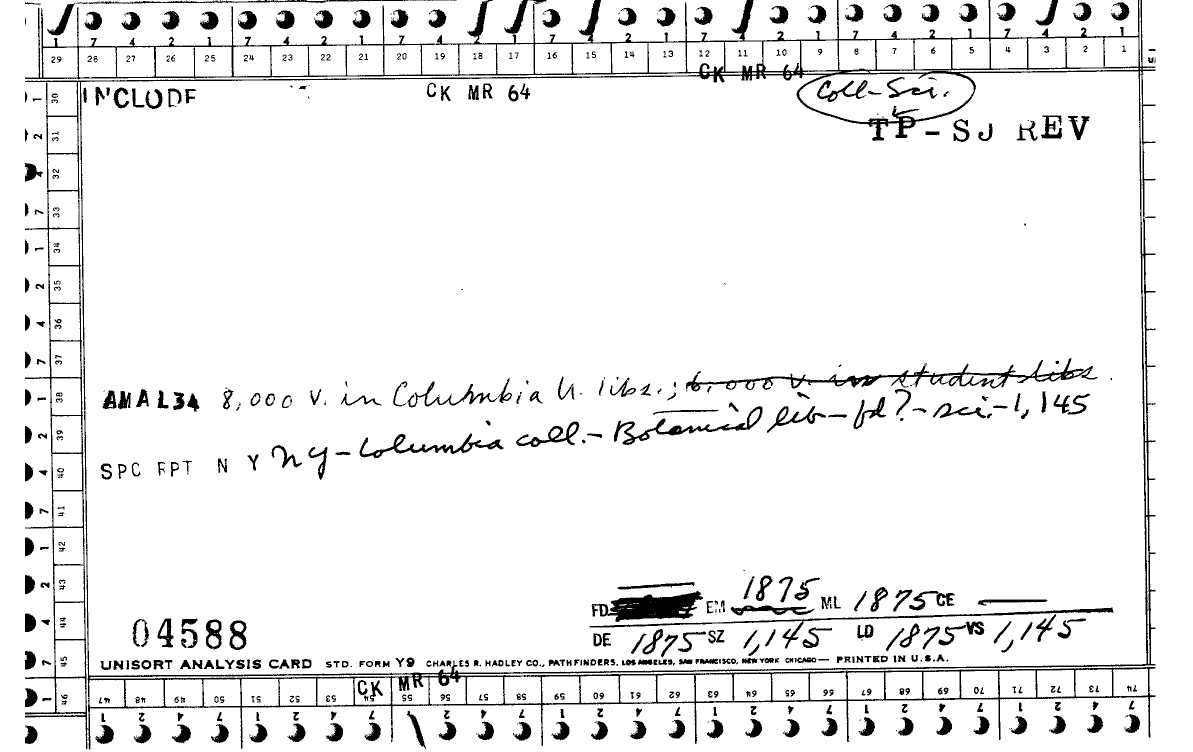 7 4 2 1 7 4 2 1 7 4 2 1 7 4 2 1 7 4 2 1 7 4 2 1 7 4 2 1
29 28 27 26 25 24 23 22 21 20 19 18 17 16 15 14 13 12 11 10 9 8 7 6 5 4 3 2 1
CK MR 64
INCLUDE CK MR 64 Coll-Sci.
TP-SJ REV
1 30
2 31
4 32
7 33
1 34
2 35
4 36
7 37
AMAL34 8,000 v. in Columbia U. libs.; 6,000 v. in student libs.
1 38
2 39
SPC RPT N Y NY-Columbia coll.- Botanical lib-fd?-sci-1,145
4 40
7 41
1 42
2 43
FD EM 1875 ML 1875 CE —
4 44
04588
DE 1875 SZ 1,145 LD 1875 VS 1,145
7 45
UNISORT ANALYSIS CARD STD. FORM Y9 CHARLES R. HADLEY CO., PATHFINDERS, LOS ANGELES, SAN FRANCISCO, NEW YORK CHICAGO— PRINTED IN U.S.A.
1 46
CK MR 64
47 48 49 50 51 52 53 54 55 56 57 58 59 60 61 62 63 64 65 66 67 68 69 70 71 72 73 74
1 2 4 7 1 2 4 7 1 2 4 7 1 2 4 7 1 2 4 7 1 2 4 7 1 2 4 7